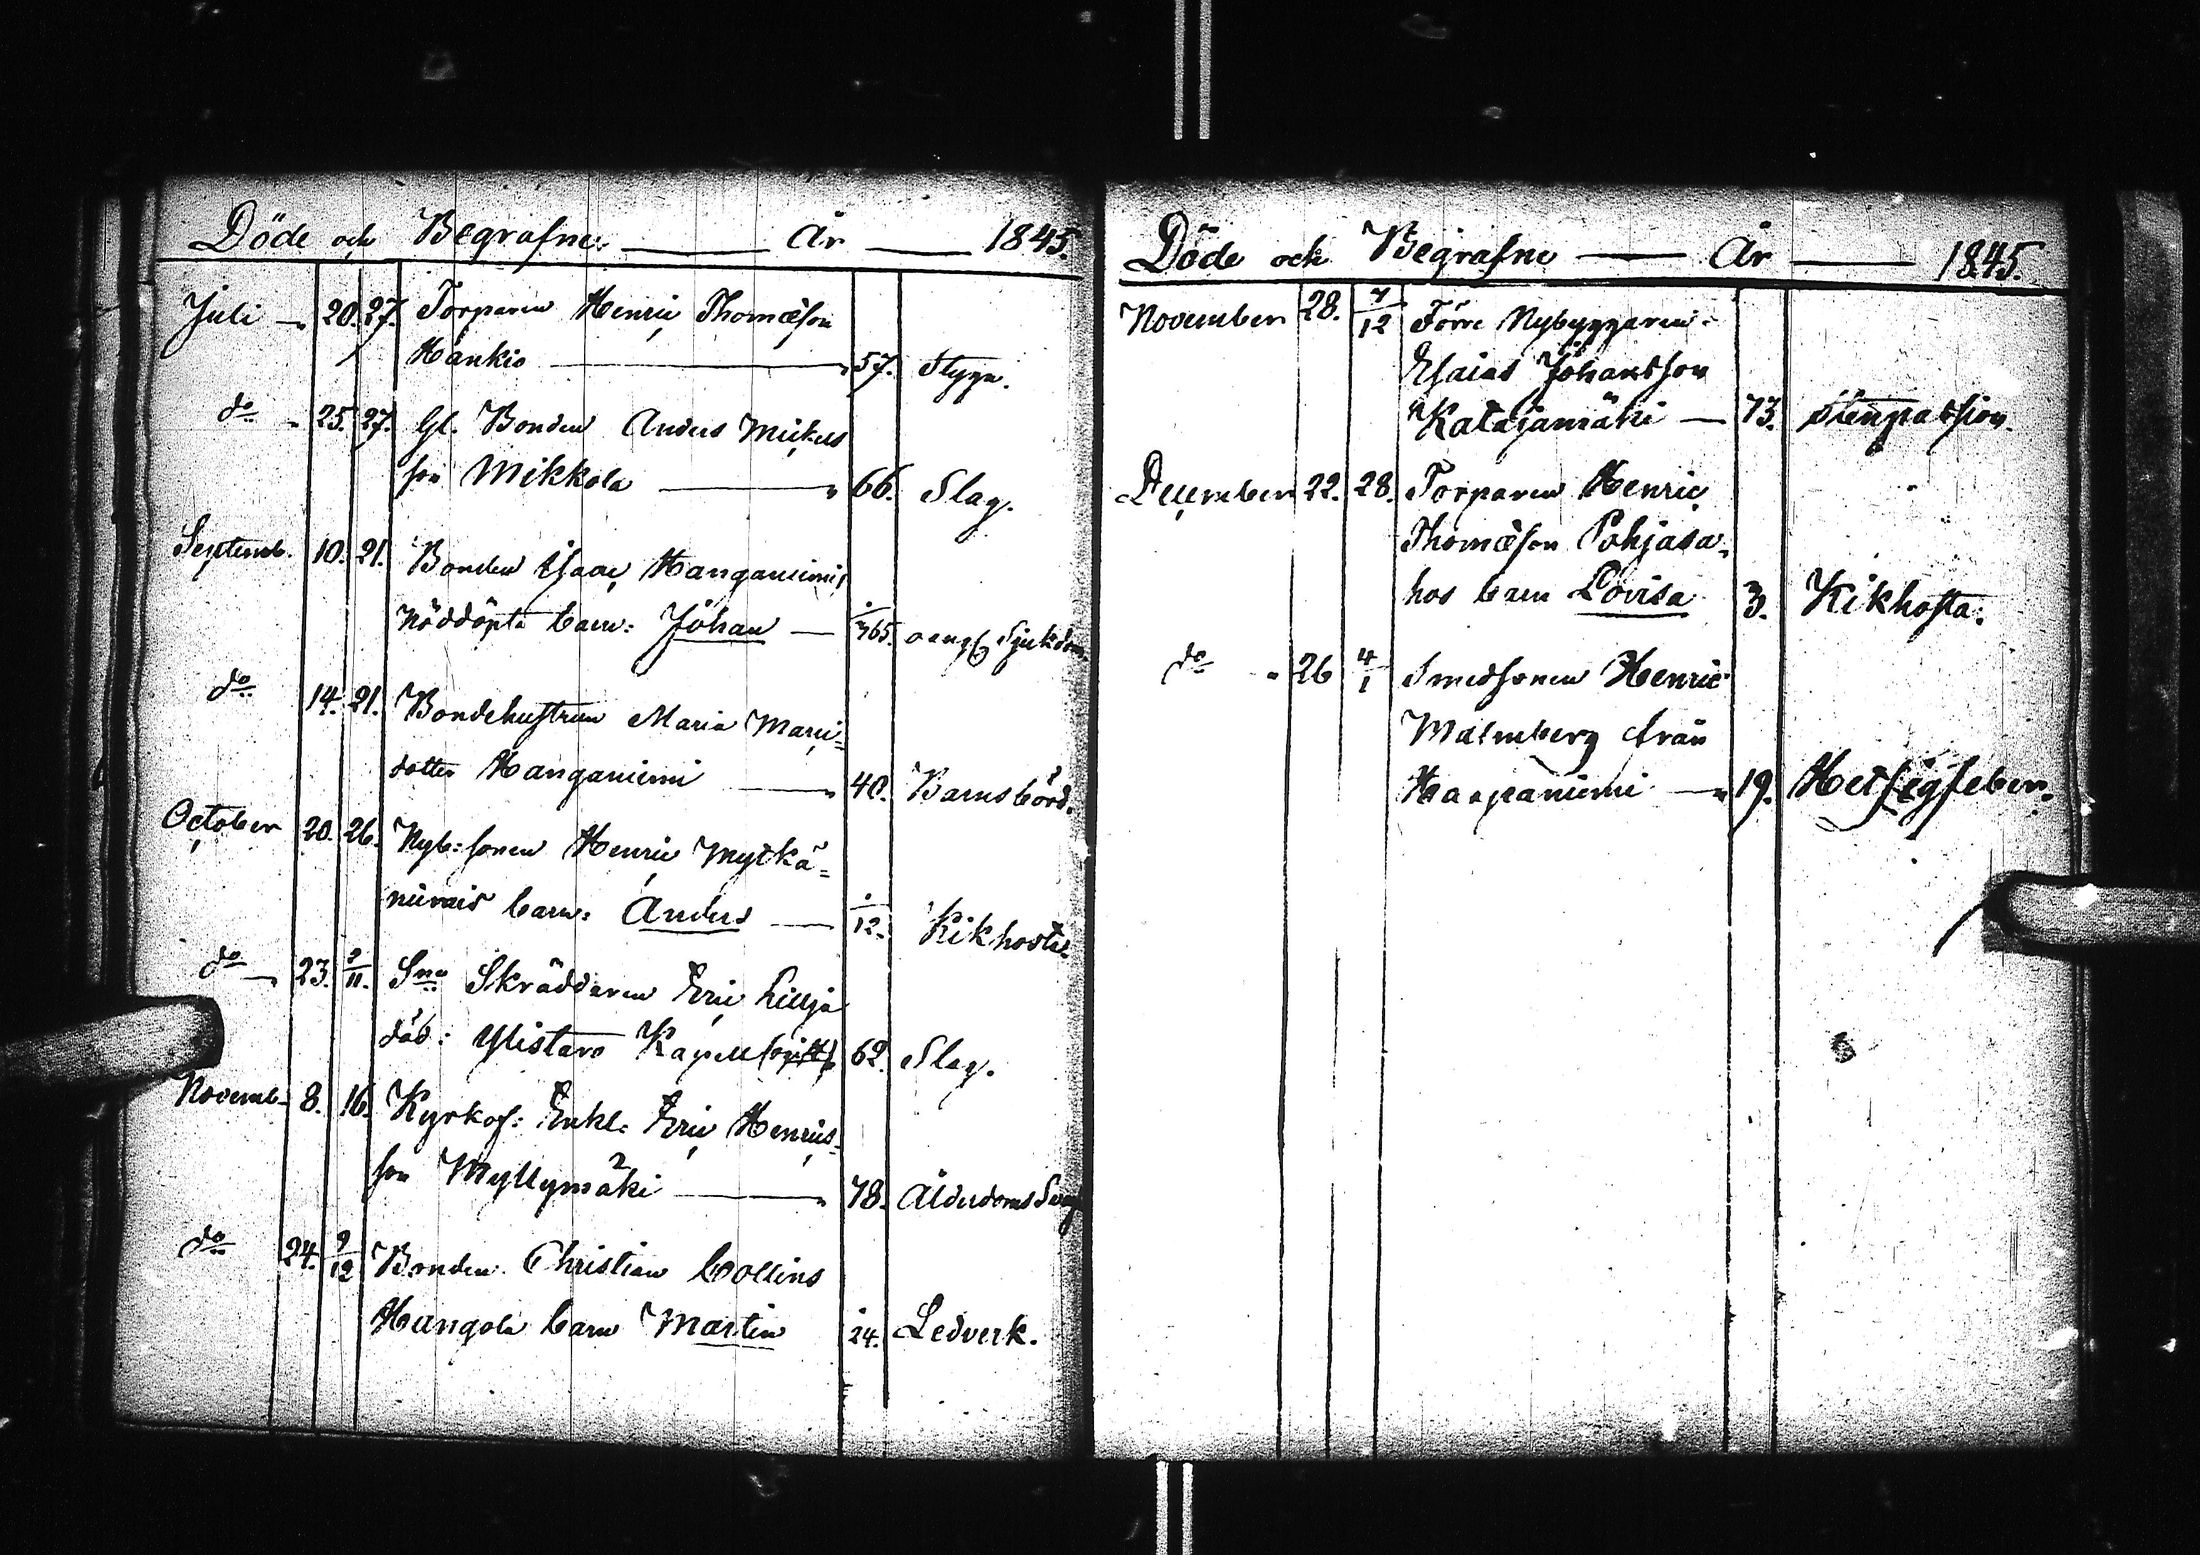 Döde och Begrafne. År 1845.
Juli 20. 27. Torparen Henric Thomæson
Hankio 57. Stygn.
do 25. 27. Gl. Bonden Anders Mickels
son Mikkola 66. Slag.
Septemb. 10. 21. Bonden Isaac Hanganiemis
Nöddöpta barn: Johan 1/365. oangf Sjukdom.
do 14. 21. Bondehustrun Maria
dotter Hanganiemi 40. Barnsbörd.
October 20. 26. Nyb: sonen Henric Mytkä=
niemis barn: Anders 1/12. Kikhosta.
do 23. 2/11. Sne Skräddaren Eric Lillja
död: Ylistaro Kapell 62. Slag.
Novemb. 8. 16. Kyrkof: Enkl: Eric Henrics=
son Myllymäki 78. Ålderdoms Svag
do 24. 9/12 Bonden Christian Collins
Hangola barn Martin 24. Ledverk.
Döde och Begrafne År 1845.
November 28. 7/12 Förre Nybyggaren
Esaias Johansson
Katajamäki 73. Stenpassion.
December 22. 28. Torparen Henric
Thomæson Pohjasa=
hos barn Lovisa 3. Kikhosta.
do 26 4/1 Smedsonen Henric
Malmberg från
Haapaniemi 19. Hetsigfeber.